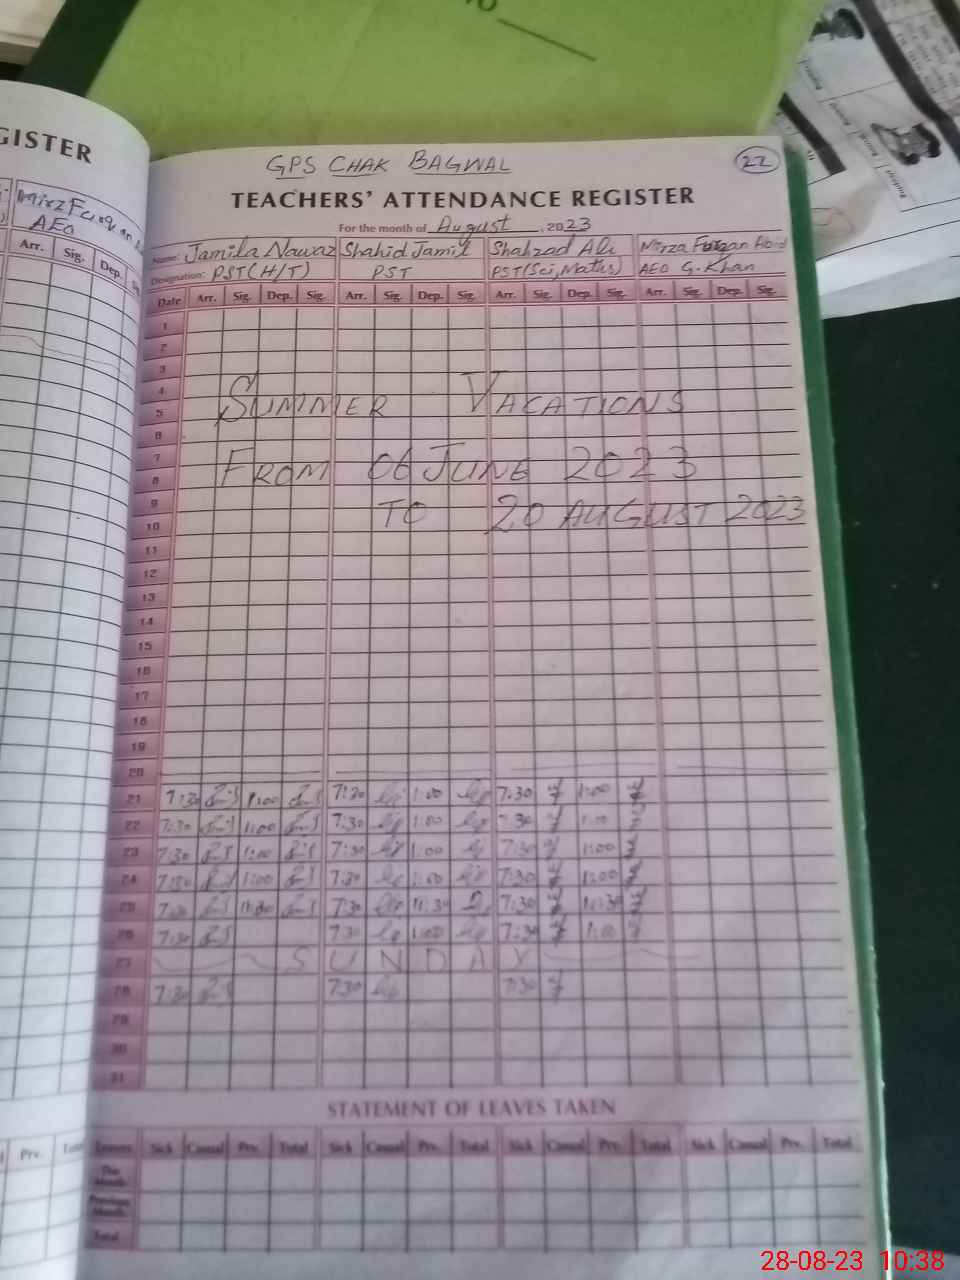 GISTER
Mirz Furqan
AEO
Arr. Sig. Dep.
Prv. Total
GPS CHAK BAGWAL
22
TEACHERS' ATTENDANCE REGISTER
For the month of August, 2023
Name: Jamila Nawaz Shahid Jamil Shahzad Ali Mirza Furqan Abid
Designation: PST(H/T) PST PST(Sci, Maths) AEO G. Khan
Date Arr. Sig. Dep. Sig. Arr. Sig. Dep. Sig. Arr. Sig. Dep. Sig. Arr. Sig. Dep. Sig.
1
2
3
4
5
SUMMER VACATIONS
6
7
8
FROM 06 JUNE 2023
9
10
TO 20 AUGUST 2023
11
12
13
14
15
16
17
18
19
20
21 7:30 1:00 7:30 1:00 7:30 1:00
22 7:30 1:00 7:30 1:00 7:30 1:00
23 7:30 1:00 7:30 1:00 7:30 1:00
24 7:30 1:00 7:30 1:00 7:30 1:00
25 7:30 11:30 7:30 11:30 7:30 11:30
26 7:30 7:30 1:00 7:30 1:00
27 SUNDAY
28 7:30 7:30 7:30
29
30
31
STATEMENT OF LEAVES TAKEN
Leaves Sick Casual Prv. Total Sick Casual Prv. Total Sick Casual Prv. Total Sick Casual Prv. Total
This Month
Previous Month
Total
28-08-23 10:38